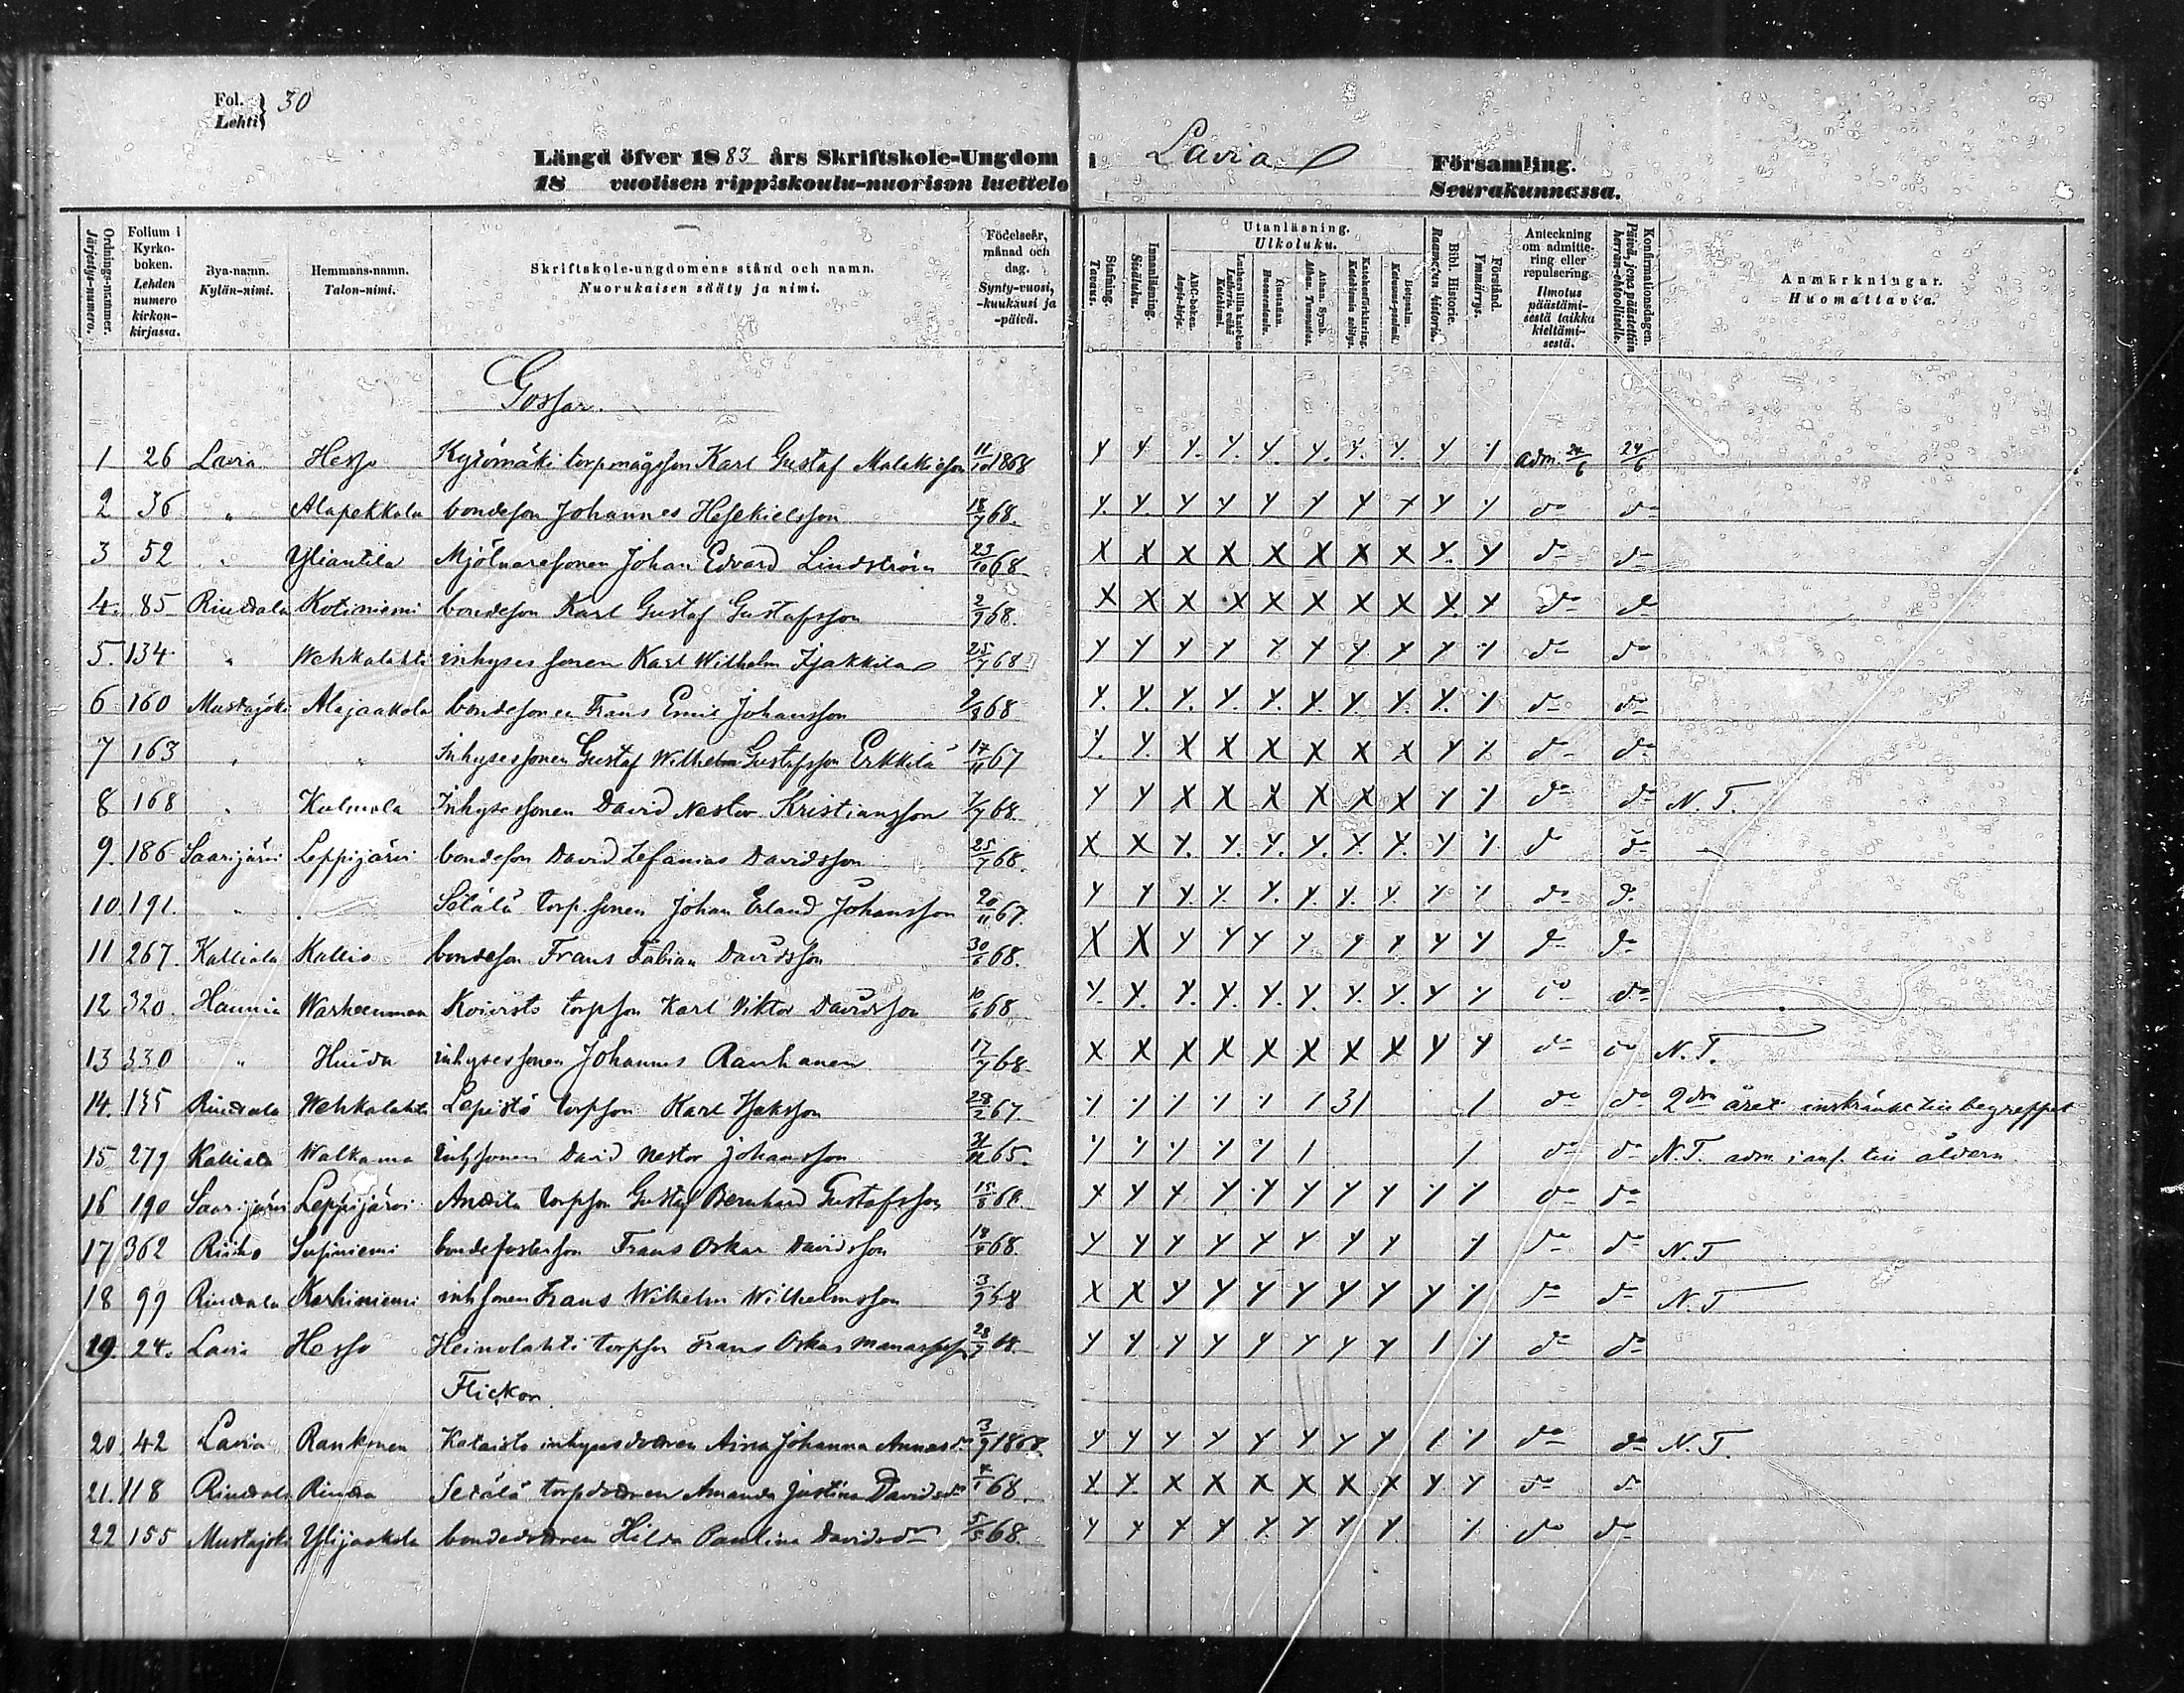 Fol. } 30
Lehti }
Längd öfver 1883 års Skriftskole-Ungdom i Lavia Församling.
18 vuotisen rippiskoulu-nuorison luettelo Seurakunnassa.
Ordnings-nummer. Järjestys-numero.
Folium i Kyrko-boken. Lehden numero kirkon-kirjassa.
Bya-namn. Kylän-nimi.
Hemmans-namn. Talon-nimi.
Skriftskole-ungdomens stånd och namn. Nuorukaisen sääty ja nimi.
Födelseår, månad och dag. Synty-vuosi, -kuukausi ja -päivä.
Stafning. Tavaus.
Innanläsning. Sisäluku.
Utanläsning. Ulkoluku.
ABC-boken. Aapis-kirja.
Luthers lilla katekes Lutherin vähä Katekismi.
Hustaflan. Huoneentaulu.
Athan. Symb. Athan. Tunnustus.
Katekesförklaring. Katekismin selitys.
Botpsalm. Katumus-psalmi.
Bibl. Historie. Raamatun historia.
Förstånd. Ymmärrys.
Anteckning om admittering eller repulsering. Ilmotus päästämisestä taikka kieltämisestä.
Konfirmationsdagen. Päivä, jona päästettiin herran-ehtoolliselle.
Anmärkningar. Huomattavia.
Gossar.
1 26 Lavia Hesso Kyrömäki torpmågsson Karl Gustaf Malakiesson 11/10 1868 y y y. y. y. y. y. y. y y adm. 24/6 24/6
2 36 " Alapekkala bondeson Johannes Hesekielsson 18/7 68. y. y. y y y y y y y y do do
3 52 " Yliantila Mjölnaresonen Johan Edvard Lindström 23/10 68 x x x x x x x x y. y do do
4. 85 Riudala Kotiniemi bondeson Karl Gustaf Gustafsson 2/9 68. x x x x x x x x x. y do do
5. 134 " Wehkalahti inhysessonen Karl Wilhelm Jjakkila 25/7 68 y y y y y y y y y y do do
6 160 Mustajoki Alajaakola bondesonen Frans Emil Johansson 2/8 68 y. y. y. y. y. y. y. y. y. y do do
7 163 " " Inhysessonen Gustaf Wilhelm Gustafsson Erkkilä 17/11 67 y. y. x x x x x x y y do do
8 168 " Kulmala Inhysessonen David Nestor Kristiansson 7/7 68. y y x x x x x x y y do do N. T.
9. 186 Saarijärvi Leppijärvi bondeson David Zefanias Davidsson 25/7 68. x x y. y. y. y. y. y. y y d do
10. 191. " " Sétälä torp.sonen Johan Erland Johansson 20/11 67. y y y. y. y. y. y. y. y. y do do
11 267. Kalliala Kallio bondeson Frans Fabian Davidsson 30/6 68. x x y y y y y y y y do do
12 320. Haunia Warheenmaa Koivisto torpson Karl Viktor Davidsson 10/6 68 y. y. y. y. y. y. y. y. y y do do
13 330 " Huida inhysessonen Johannes Rauhanen 17/7 68. x x x x x x x x y y do do N. T.
14. 135 Riudala Wehkalahti Lepistö torpson Karl Isaksson 28/2 67. 1 31 1 do do 2dra året inskränkt till begreppet
15 279 Kalliala Walkama inhsonen David Nestor Johansson 65. 1 1 do do N. T. adm. i anf. till åldern
16 190 Saarijärvi Leppijärvi Andila torpson Gustaf Bernhard Gustafsson 15/8 68. y y y y y y y y y y do do
17 362 Riiho Susiniemi bondefosterson Frans Oskar Davidsson 68. y y y y y y y y y do do N. T
18 99 Riudala Karhiniemi inhsonen Frans Wilhelm Wilhelmsson 3/9 68 x x y y y y y y y y do do N. T
19. 24. Lavia Hesso Heinolahti torpson Frans Oskar Manassesson 28/9 68. y y y y y y y y 1 y do do
Flickor.
20. 42 Lavia Rankonen Kataisto inhysesdottren Aina Johanna Annasdr 3/9 1868 y y y y y y y y 1 y do do N. T.
21. 118 Riudala Riuda Setälä torpdottren Amanda Justina Davidsdr 68. y y. x x x x x x y. y do do
22 155 Mustajoki Ylijaakola bondedottren Hilda Paulina Davidsdr 5/5 68. y y y y y y y y. y do do